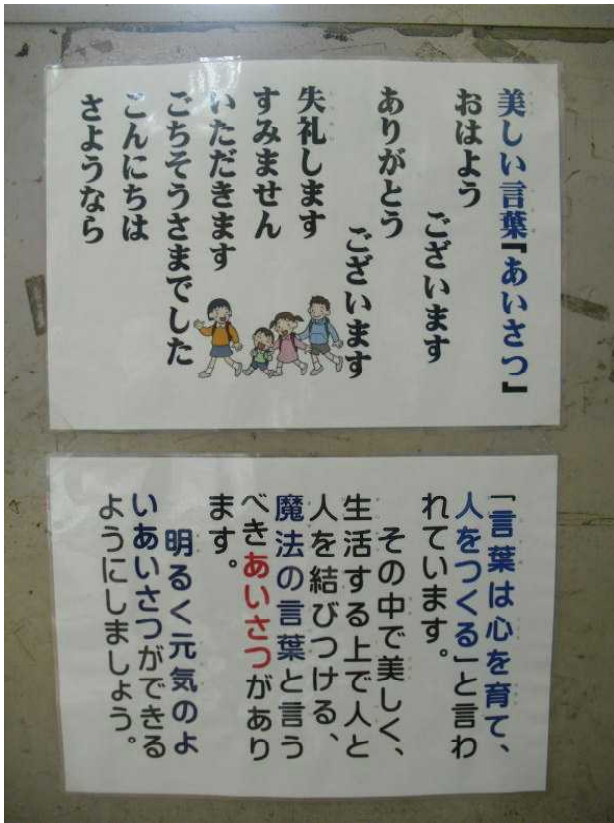 美しい言葉『あいさつ』
おはよう
ございます
ありがとう
ございます
失礼します
すみません
いただきます
ごちそうさまでした
こんにちは
さようなら
「言葉は心を育て、
人をつくる」と言わ
れています。
その中で美しく、
生活する上で人と
人を結びつける、
魔法の言葉と言う
べきあいさつがあり
ます。
明るく元気のよ
いあいさつができる
ようにしましょう。